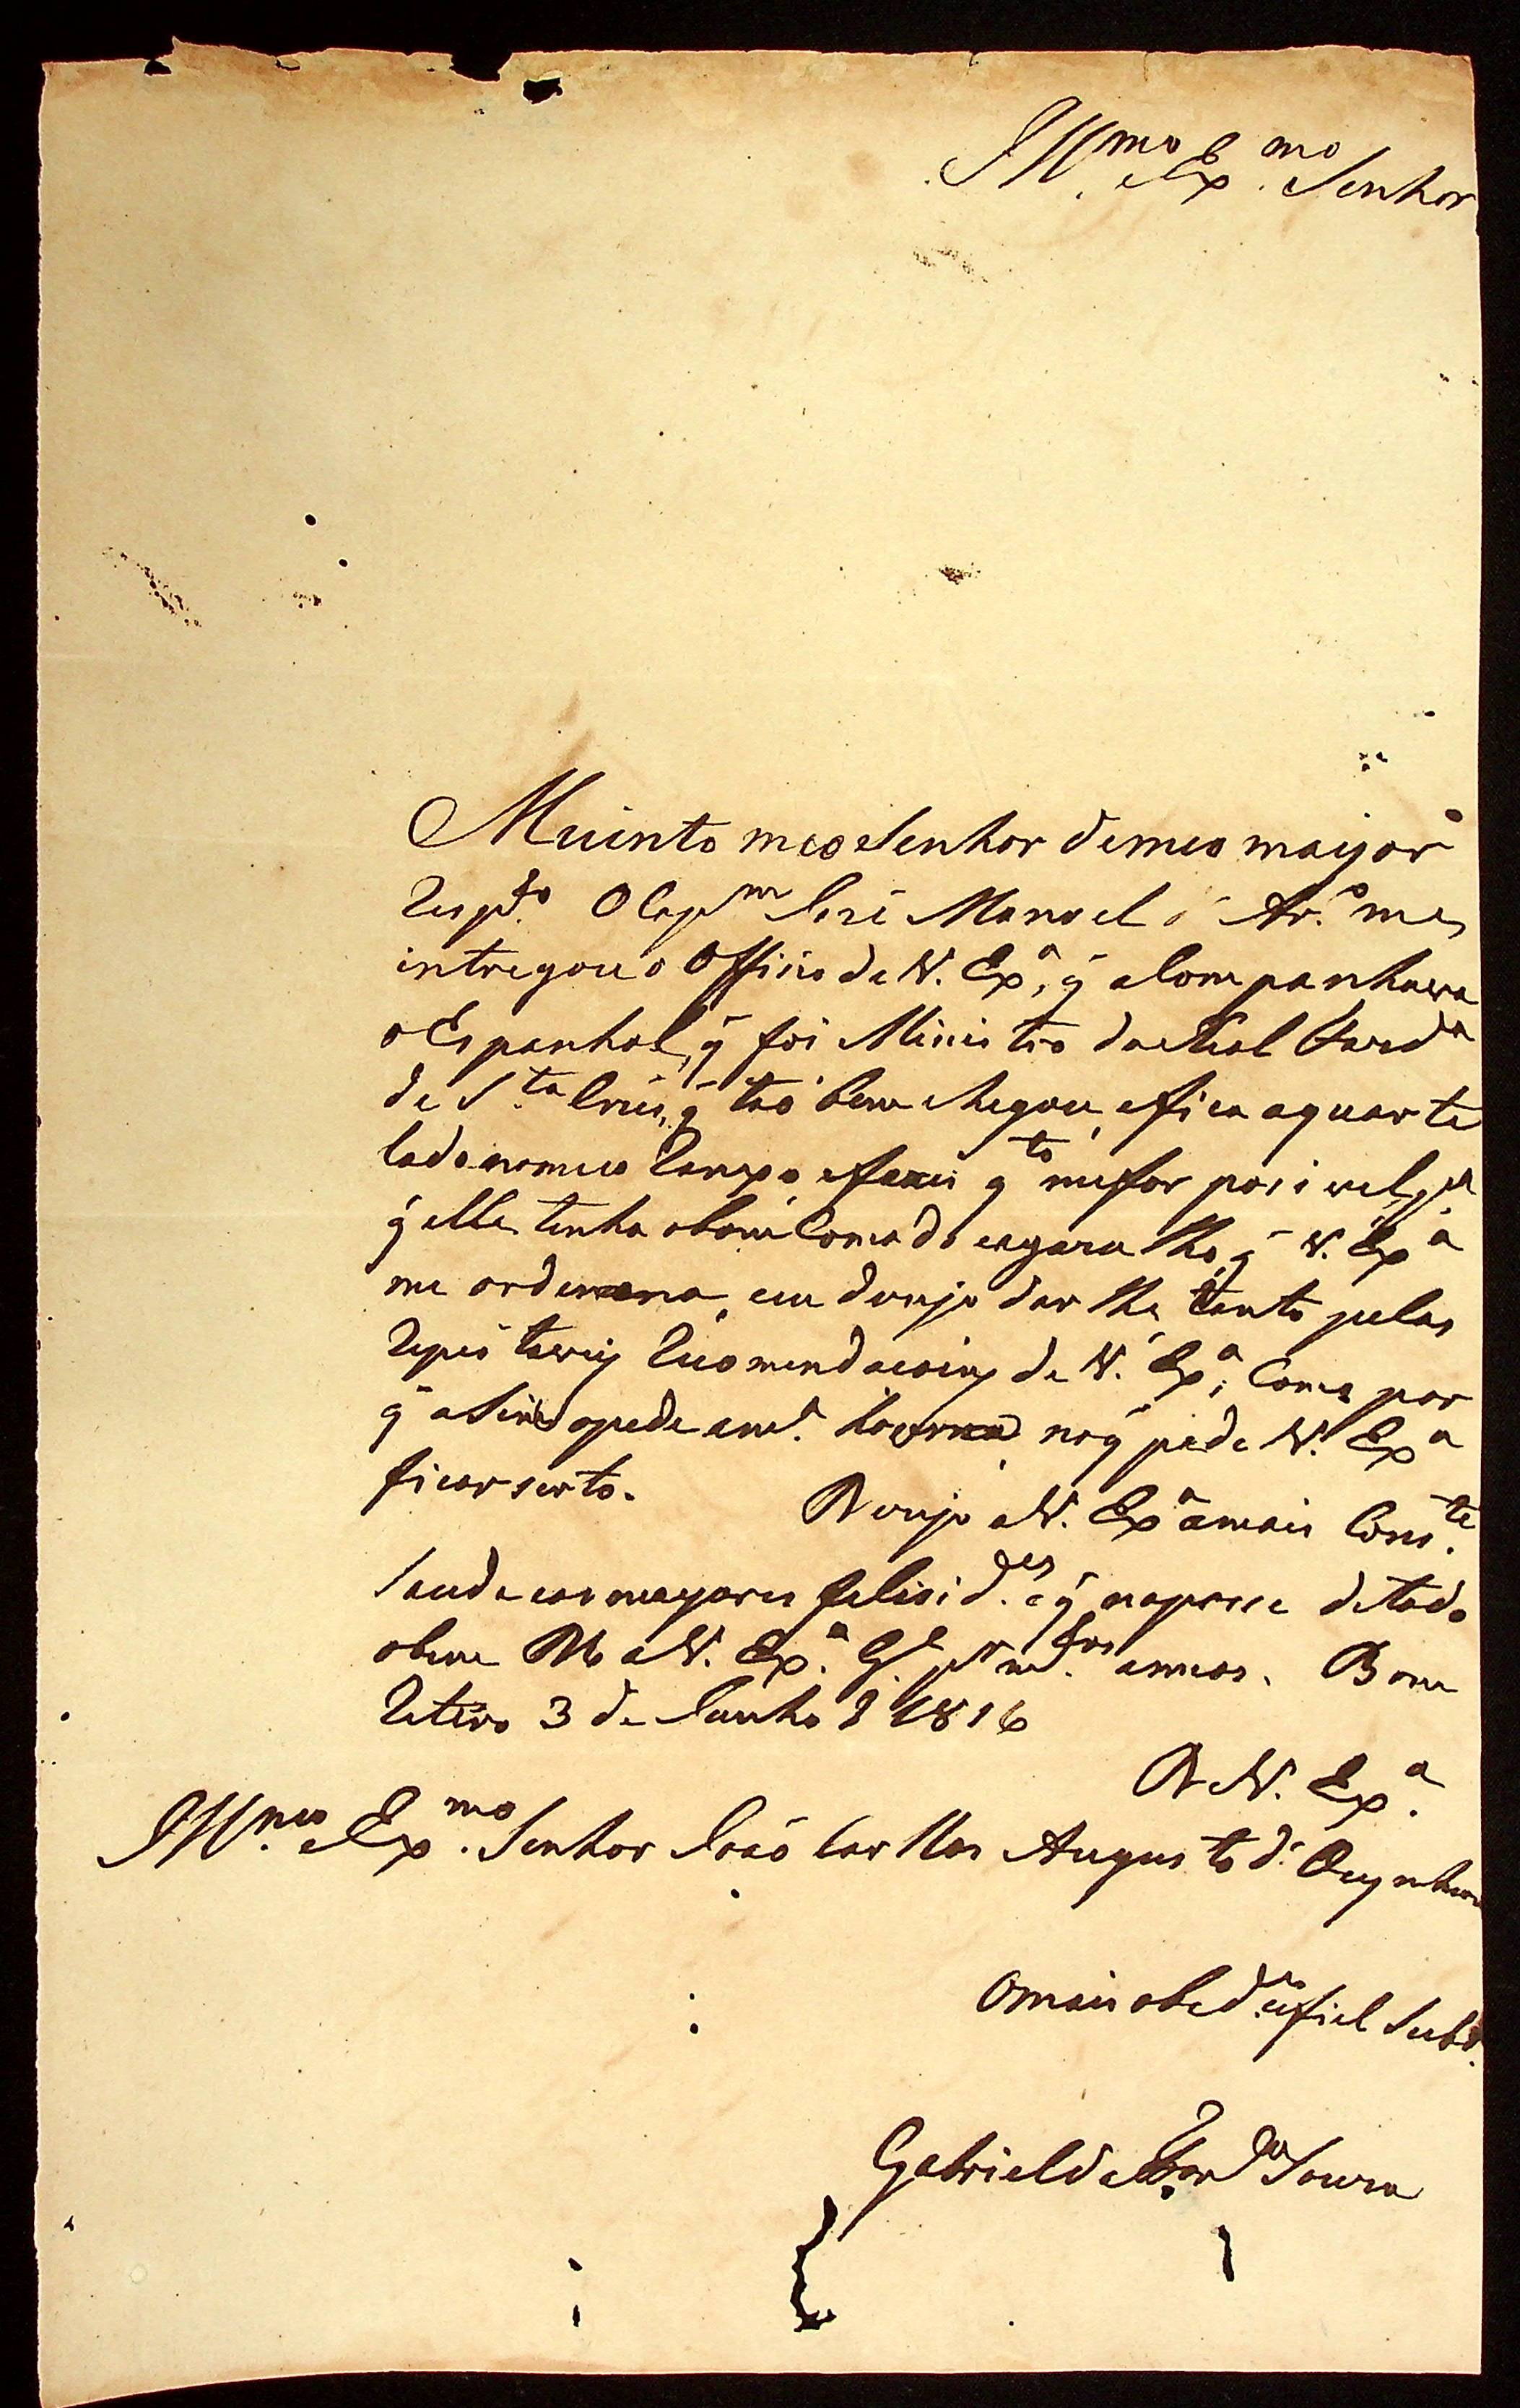 Ill.mo e Ex.mo Senhor
Muinto meo Senhor de meo mayor
respt.o O Cap.m José Manoel d' Ar.o me
intregou o Officio de V. Ex.a, q̃ acompanhava
o Espanhol, q̃ foi Ministro da Real Fazd.a
de S.ta Crús, q̃ taõ bem chegou, e fica aquarte
lado no meu Campo, e farei q.to me for pocivel, p.a
q̃ elle tenha o bom Comodo e agazalho, q̃ V. Ex.a
me ordena, eu dezejo dar lhe tanto pelas
respeitaveis recomendacoins de V. Ex.a, Como por
q̃ asim o pede a no q̃ pode V. Ex.a
ficar serto. Dezejo a V. Ex.a a mais Cons.te
saude e as mayores felisid.es e q̃ na posse de todo
o bem D.s G.e a V. Ex.a p.r m.tos annos. Bom
Retiro 3 de Junho d 1816
De V. Ex.a
Ill.mo e Ex.mo Senhor Joaõ Carllos Augusto d' Oeynhau
O mais obed.te e fiel Subd.
Gabriel da Fon.ca Souza